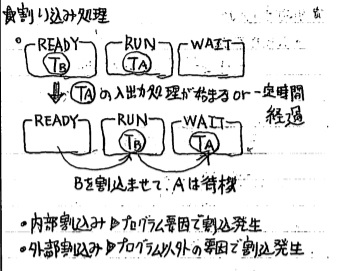 割り込み処理
READY RUN WAIT
TB TA
TAの入出力処理が始まる or 一定時間
経過
READY RUN WAIT
TB TA
Bを割込ませて、Aは待機
・内部割込み▷プログラム要因で割込発生
・外部割込み▷プログラム以外の要因で割込発生